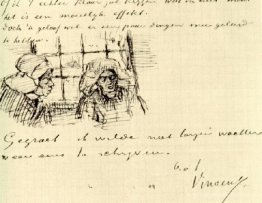 het is een moeielijk effekt.
doch 'k geloof wel er een paar dingen mee geleerd
te hebben.
Gegroet ik wilde niet langer wachten
weer eens te schrijven.
b.à t.
Vincent